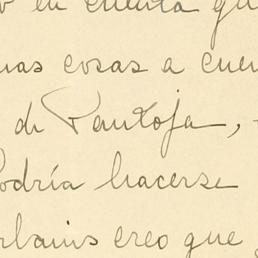 en cuenta qu
cosas a cuen
de Pantoja,
Podría hacerse
creo que